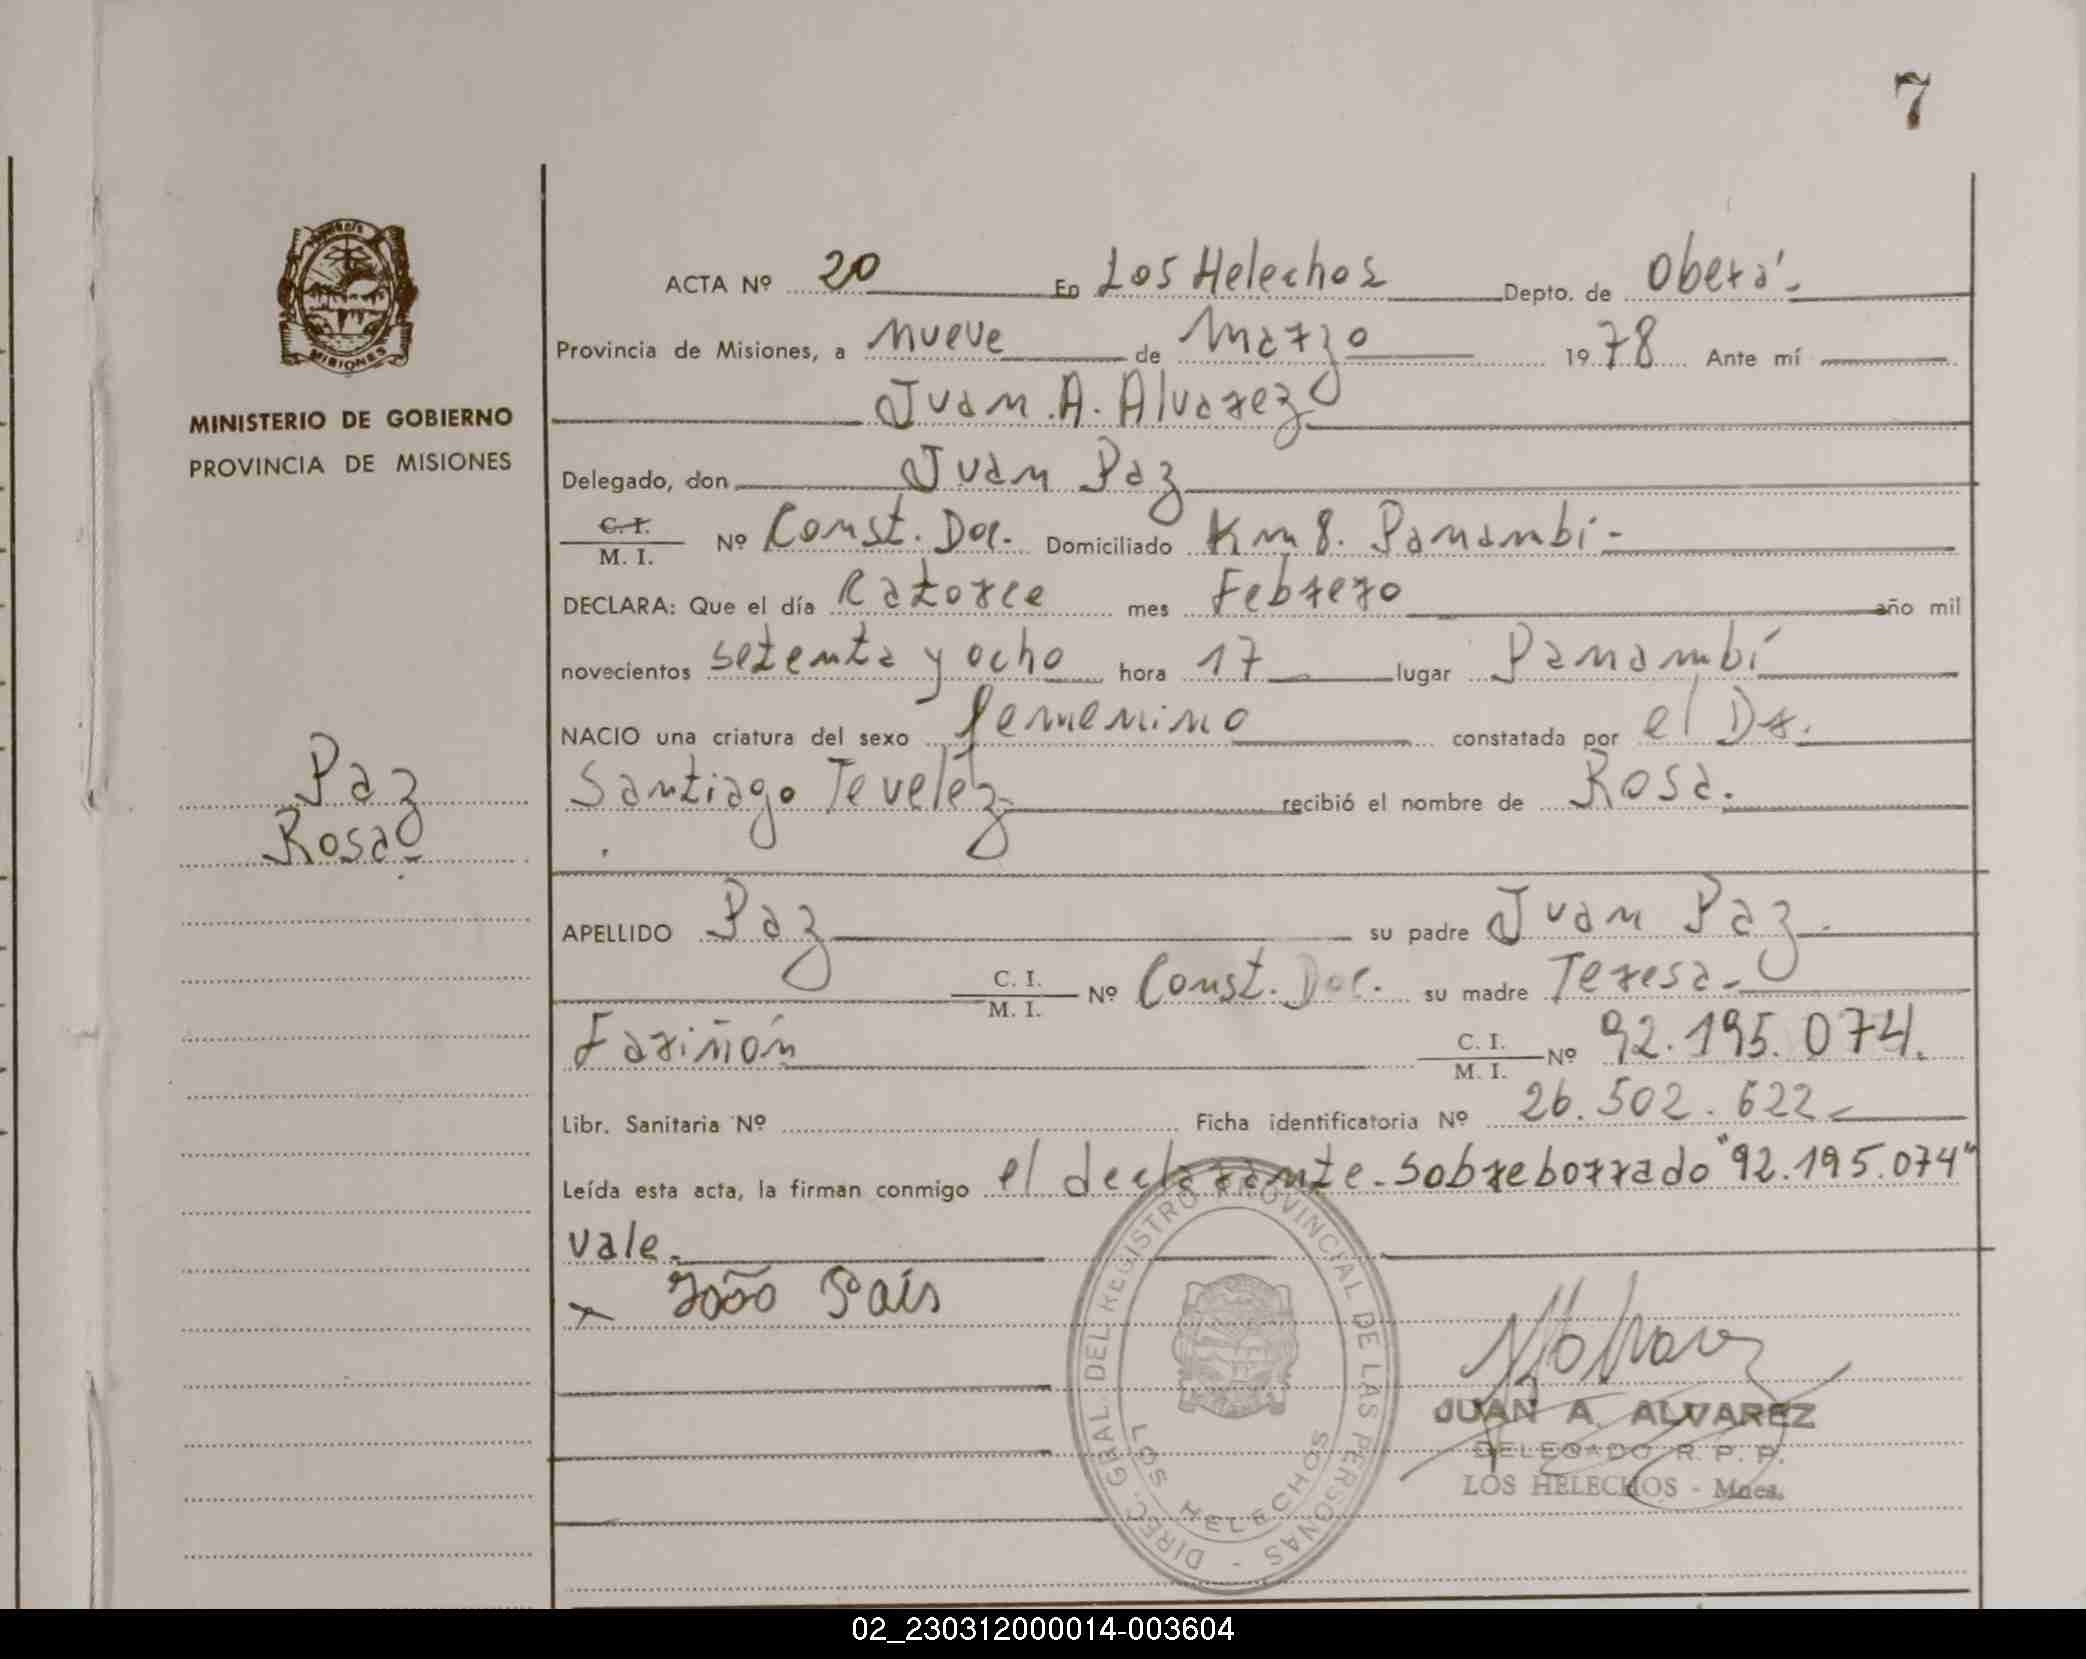 7
ACTA Nº 20 En Los Helechos Depto. de Oberá.
Provincia de Misiones, a nueve de Marzo 1978 Ante mí
Juan A. Alvarez
MINISTERIO DE GOBIERNO
PROVINCIA DE MISIONES
MISIONES
Delegado, don Juan Paz
C. I. / M. I. Nº Const. Doc. Domiciliado Km 8. Panambí-
DECLARA: Que el día Catorce mes Febrero año mil
novecientos setenta y ocho hora 17 lugar Panambí
NACIO una criatura del sexo femenino constatada por el Dr.
Santiago Tevelez recibió el nombre de Rosa.
Paz
Rosa
APELLIDO Paz su padre Juan Paz-
C. I. / M. I. Nº Const. Doc. su madre Teresa-
Fariñón C. I. / M. I. Nº 92.195.074.
Libr. Sanitaria Nº Ficha identificatoria Nº 26.502.622-
Leída esta acta, la firman conmigo el declarante. Sobreborrado "92.195.074"
vale.
x João Pais
DIREC. GRAL. DEL REGISTRO PROVINCIAL DE LAS PERSONAS -
LOS HELECHOS
JUAN A. ALVAREZ
DELEGADO R. P. P.
LOS HELECHOS - Mnes.
02_230312000014-003604